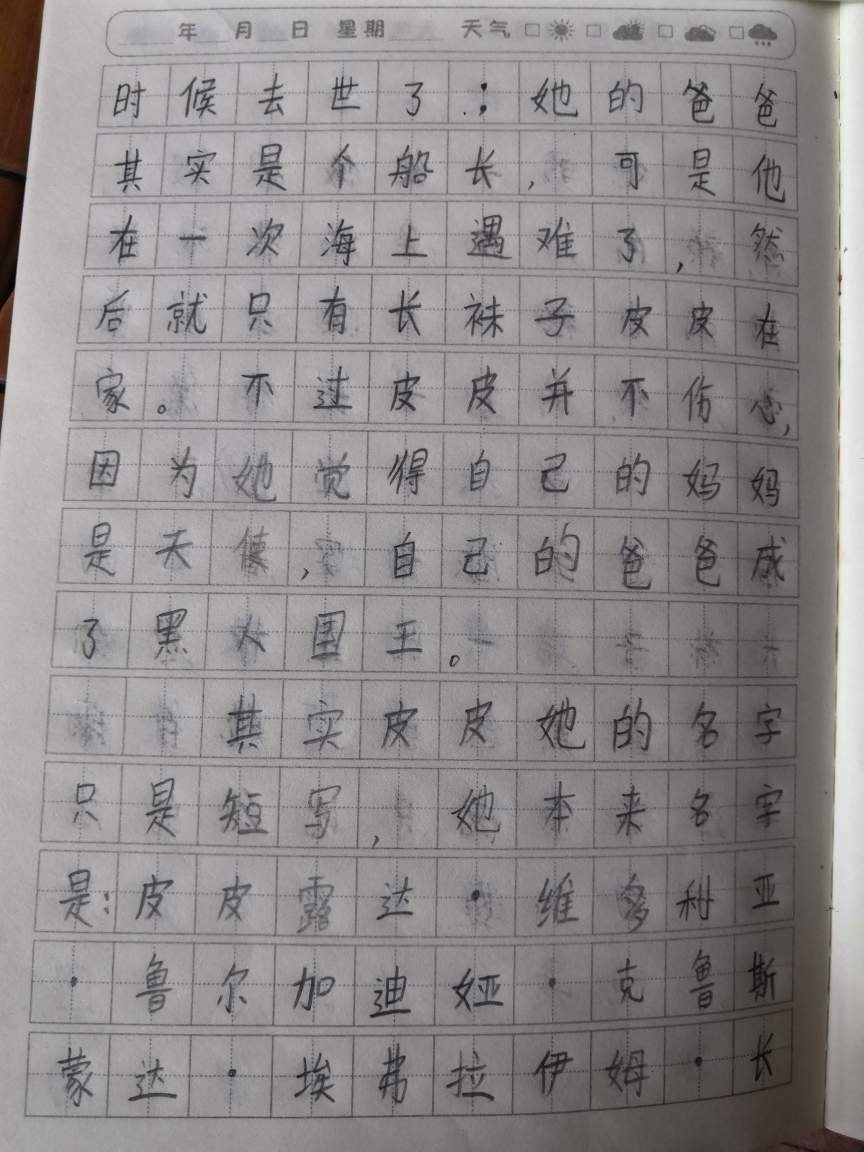 年 月 日 星期 天气
时候去世了；她的爸爸
其实是个船长，可是他
在一次海上遇难了，然
后就只有长袜子皮皮在
家。不过皮皮并不伤心，
因为她觉得自己的妈妈
是天使，自己的爸爸成
了黑人国王。
其实皮皮她的名字
只是短写，她本来名字
是：皮皮露达·维多利亚
·鲁尔加迪娅·克鲁斯
蒙达·埃弗拉伊姆·长